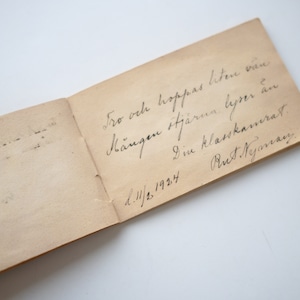 Tro och hoppas liten vän
Mången stjärna lyser än
Din klasskamrat
Rut
d. 11/2 1924